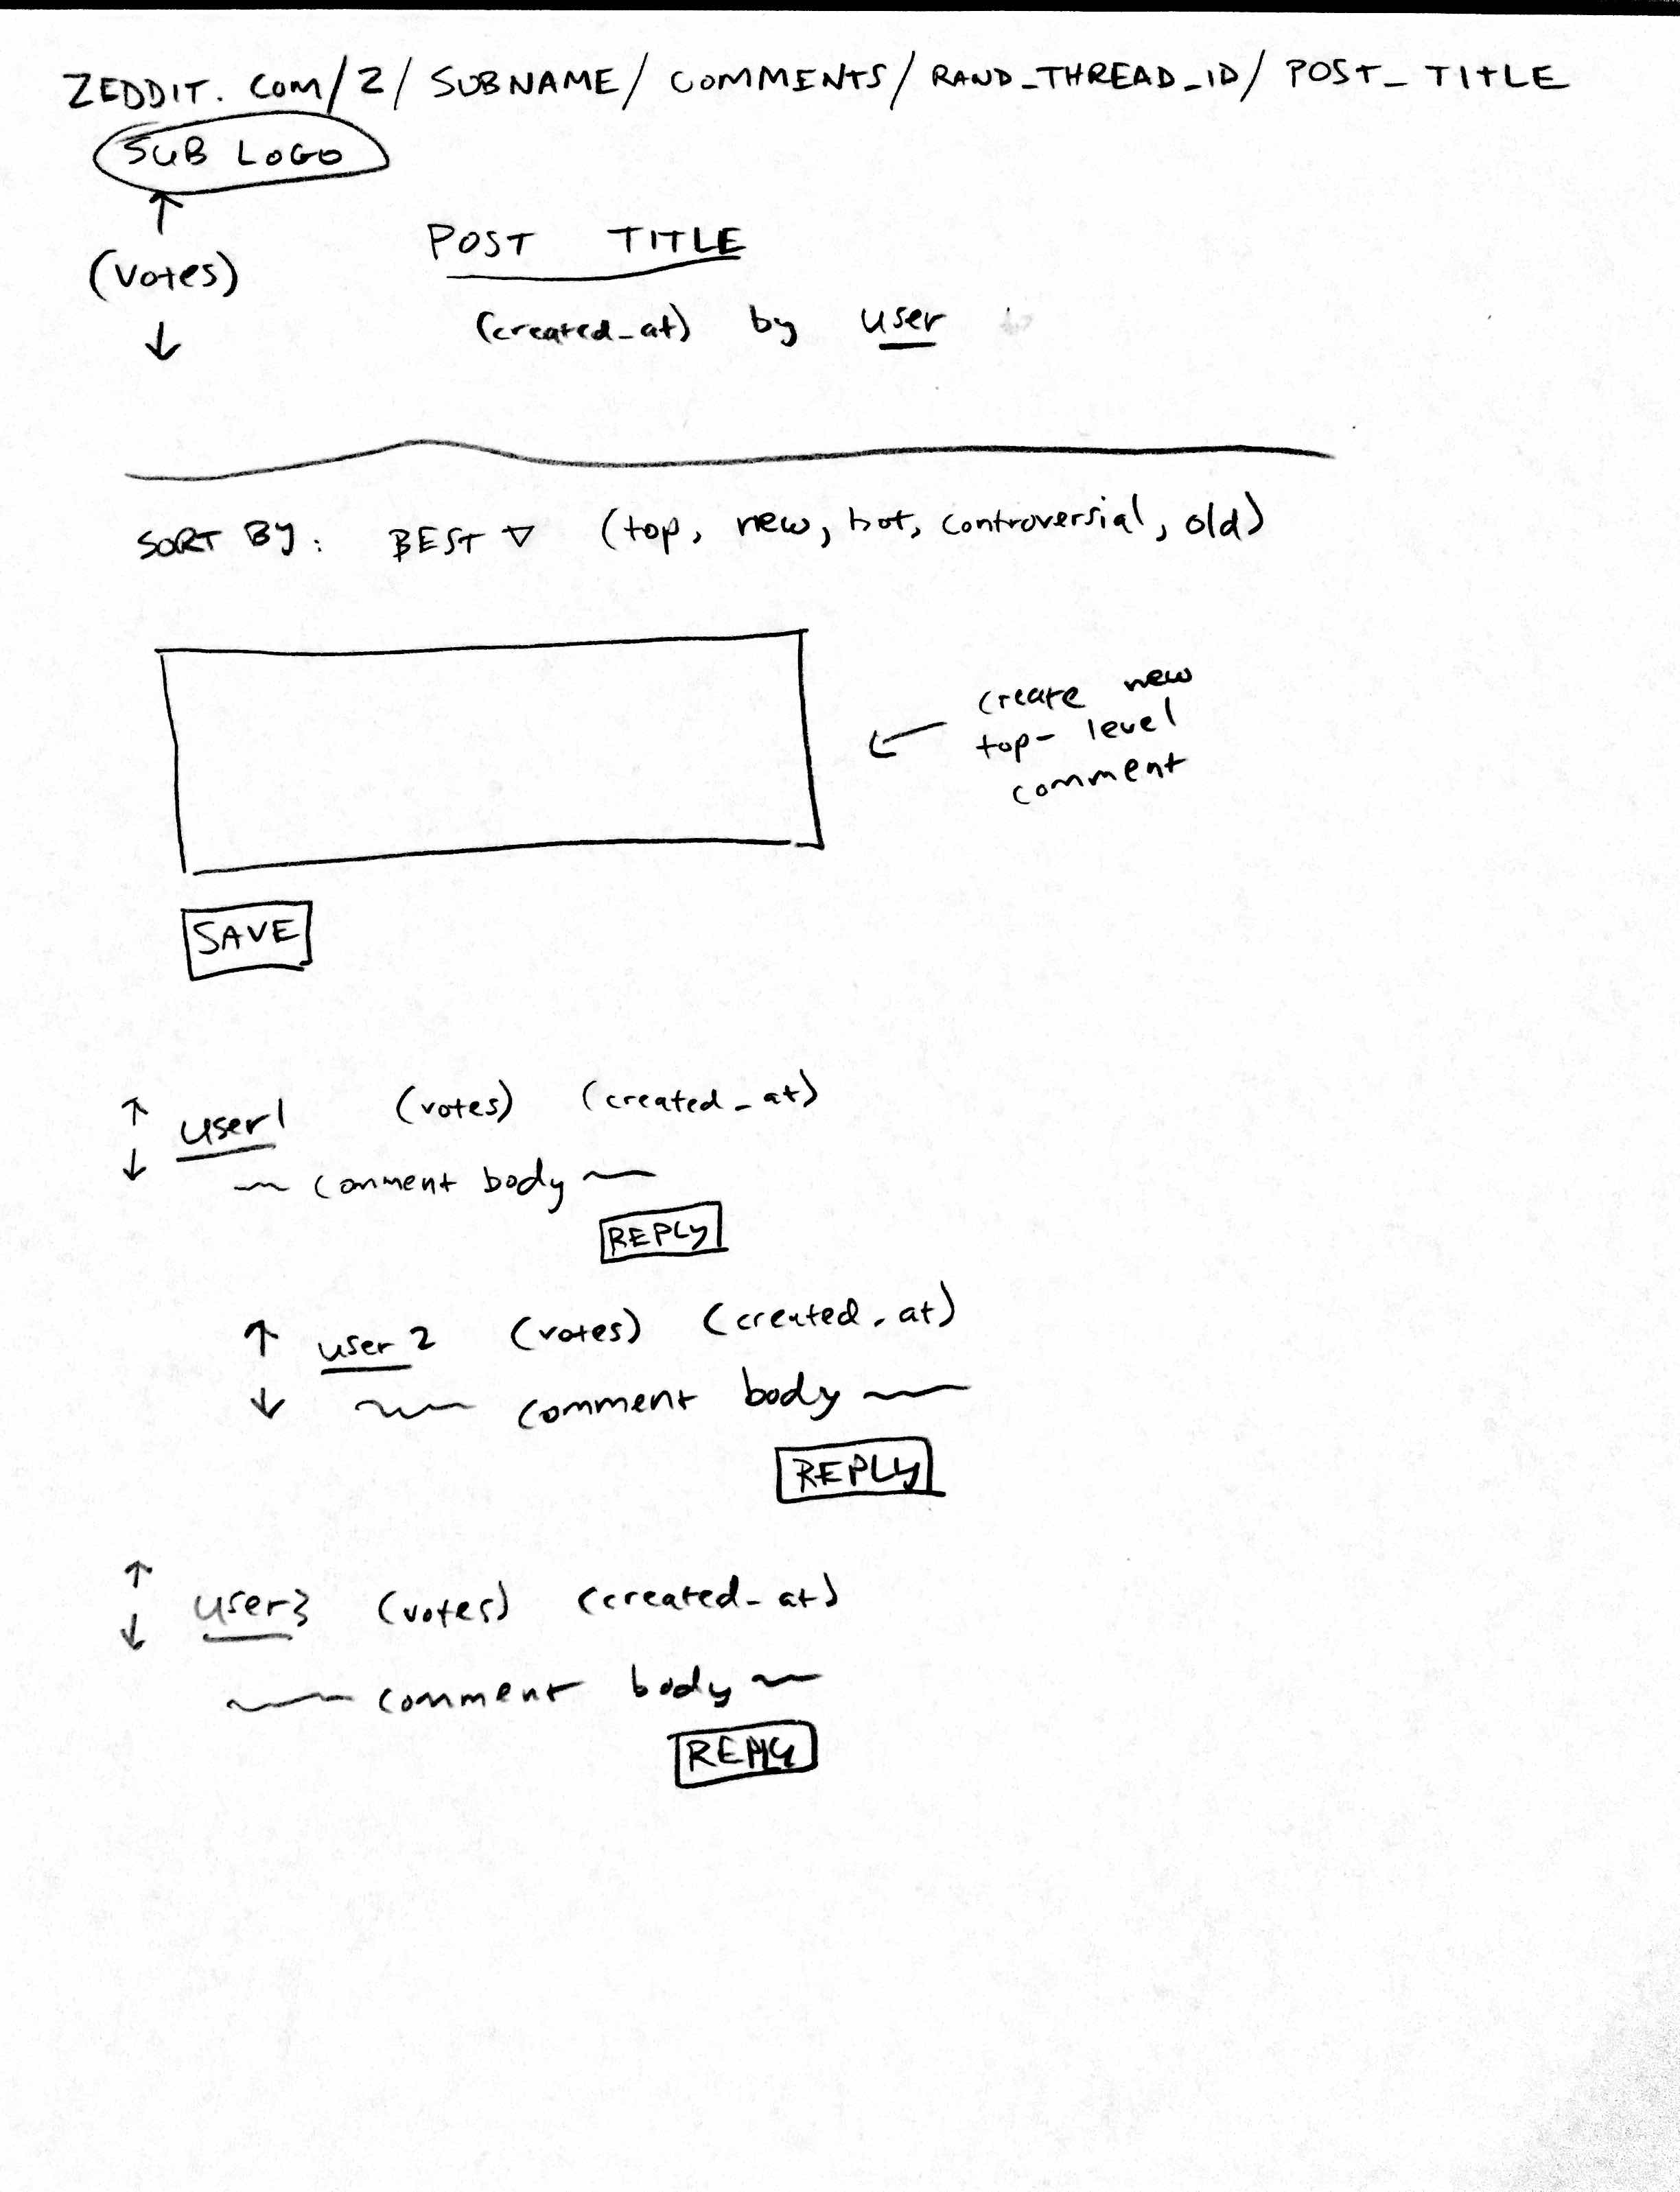 ZEDDIT. COM/Z/ SUBNAME/ COMMENTS/ RAND_THREAD_ID/ POST_TITLE
SUB LOGO
(votes)
POST TITLE
(created_at) by user
SORT BY: BEST ▽ (top, new, hot, controversial, old)
create new
top-level
comment
SAVE
user1 (votes) (created_at)
comment body
REPLY
user2 (votes) (created_at)
comment body
REPLY
user3 (votes) (created_at)
comment body
REPLY